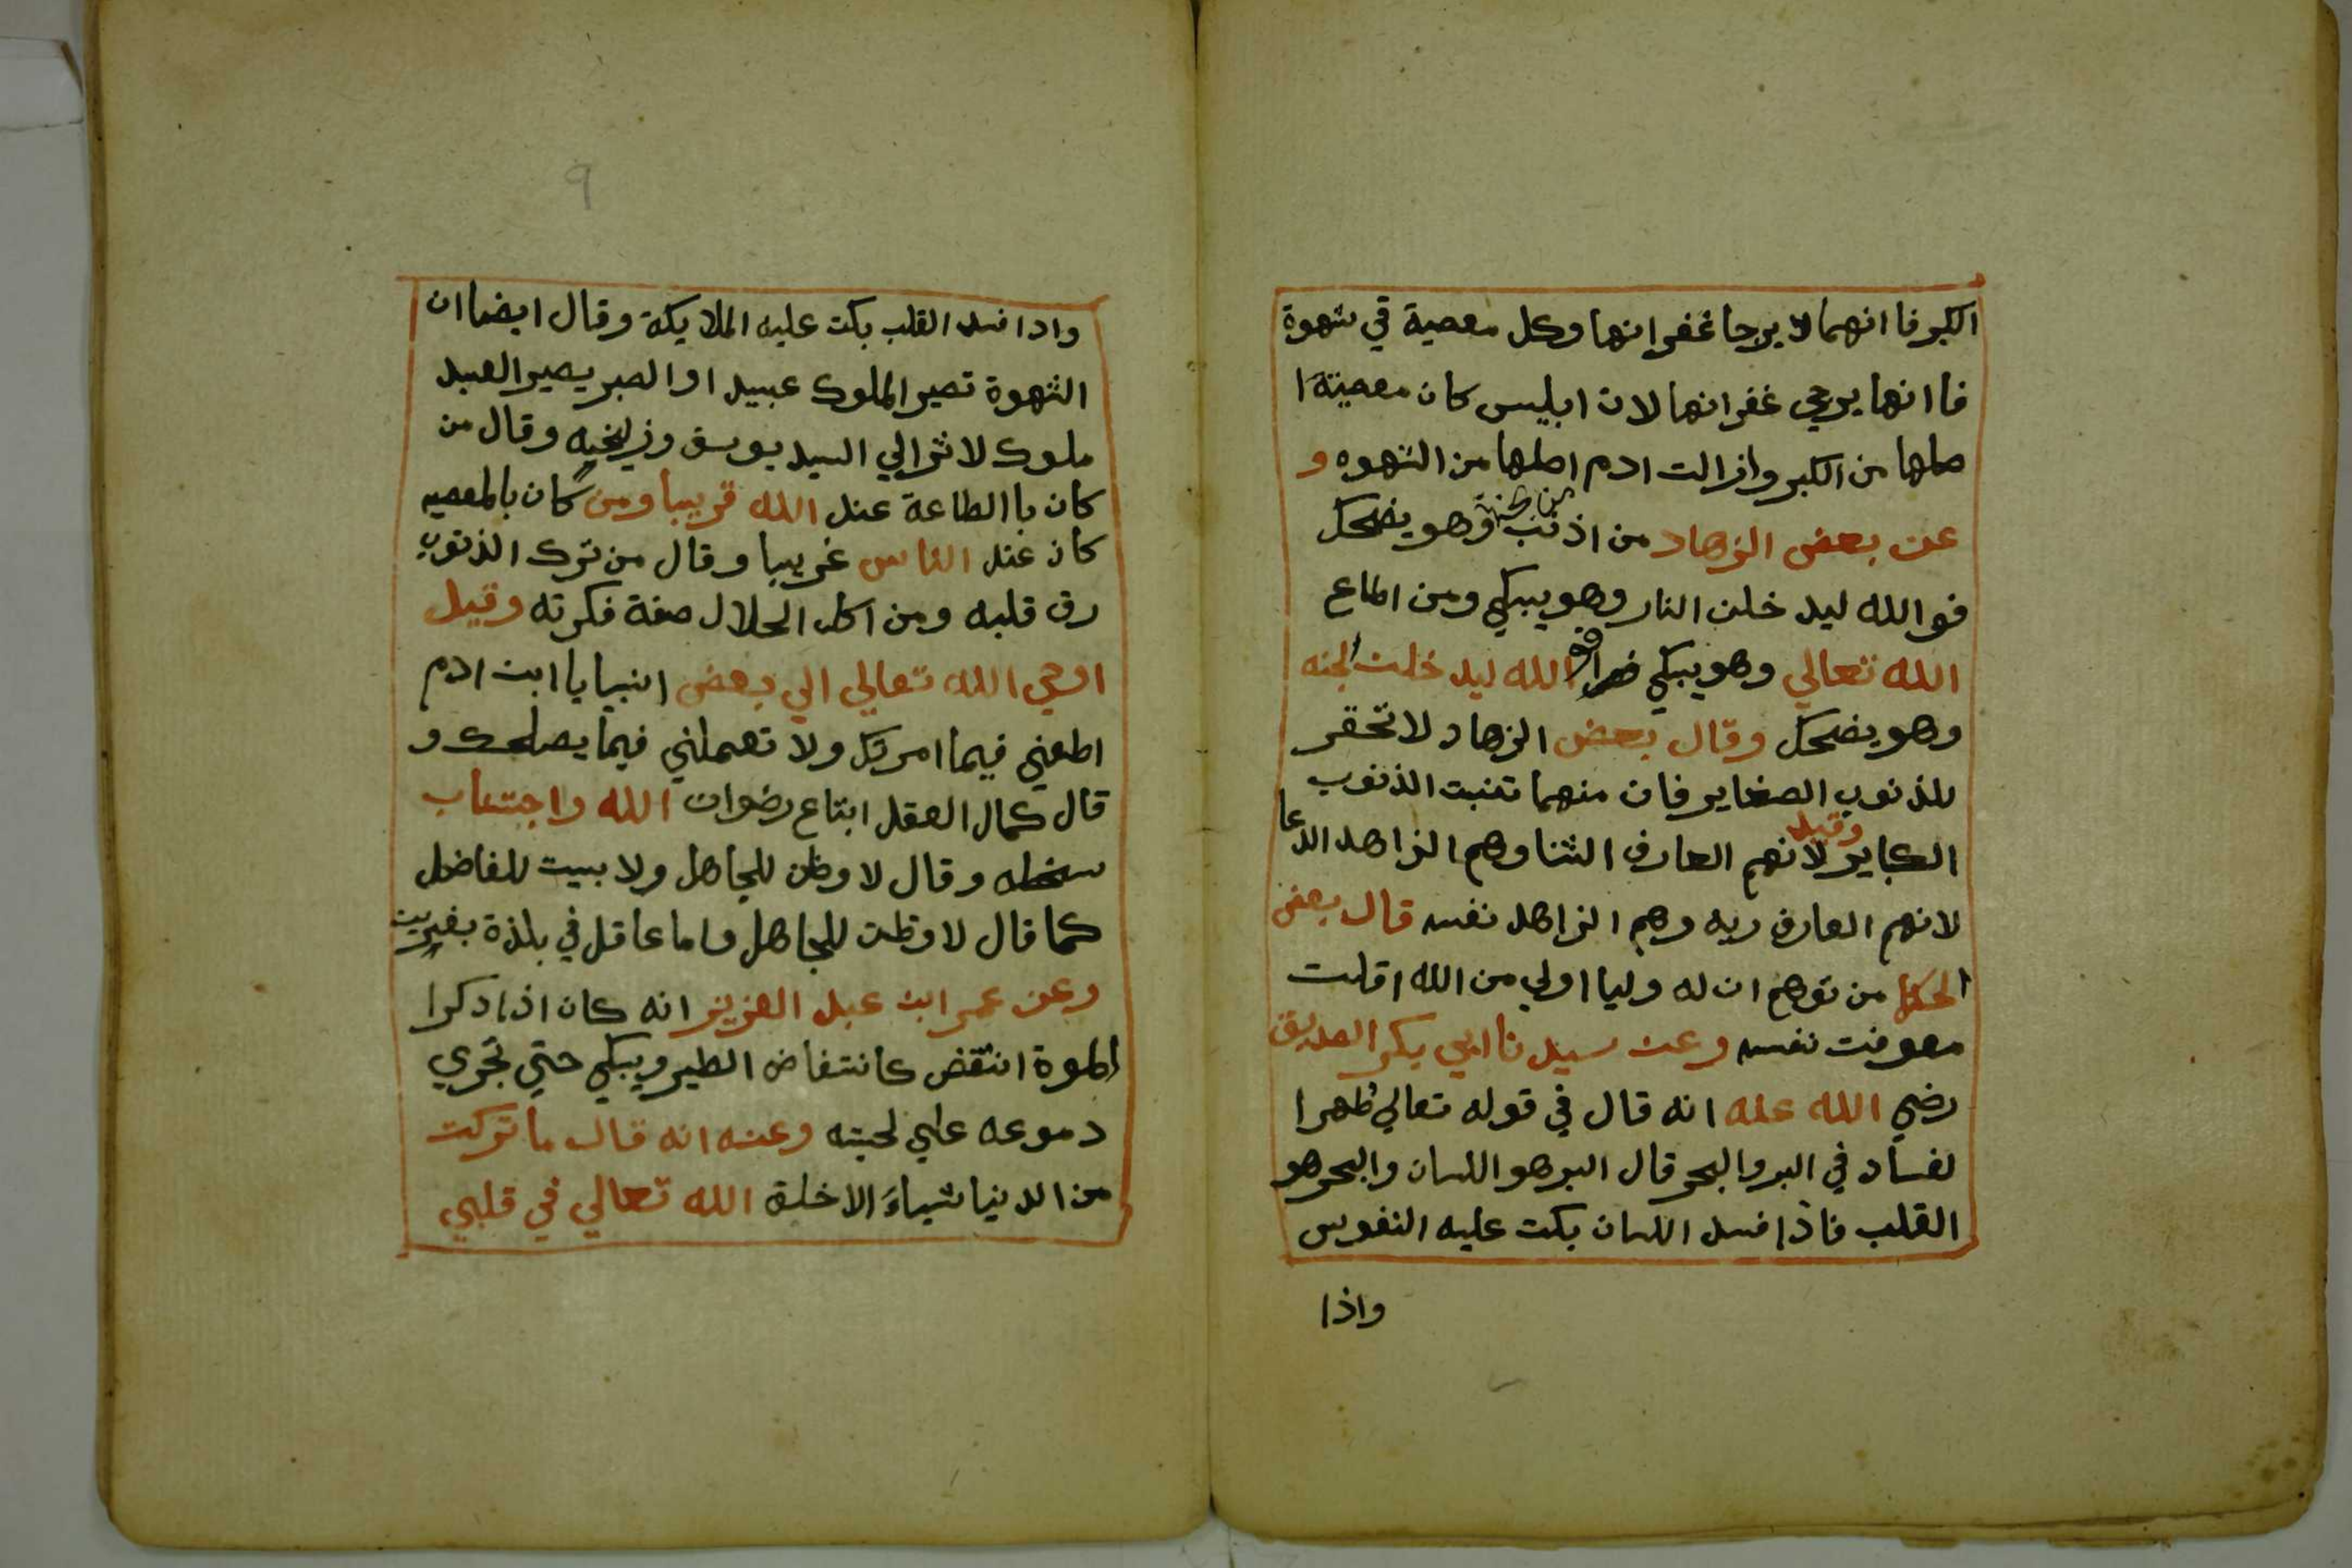 الكبر فا انهما لا يرجا غفرانها وكل معصية في شهوة
فا انها يرجي غفرانها لان ابليس كان معصيتة ا
صلها من الكبر وازالت ادم اصلها من الشهوه و
عن بعض الزهاد من اذنب وهو يضحك
فوالله ليد خلن النار وهو يبكي ومن اطاع
الله تعالي وهو يبكي فو الله ليد خلت الجنه
وهو يضحك وقال بعض الزهاد لا تحقر
للذنوب الصغاير فان منهما تنبت الذنوب
الكباير وقيل لانهم العارف الثنا وهم الزاهد الدعا
لانهم العارف ربه وهم الزاهد نفسه قال بعض
الحكما من توهم ان له وليا اولي من الله اقلت
معرفت نفسه وعن سيدنا ابي بكر الصديق
رضي الله عنه انه قال في قوله تعالي ظهرا
لفساد في البر والبحر قال البر هو اللسان والبحر هو
القلب فاذا فسد اللسان بكت عليه النفوس
واذا
9
واذا فسد القلب بكت عليه الملايكة وقال ايضا ان
الشهوة تصير الملوك عبيد او الصبر يصير العبيد
ملوك لا ترا الي السيد يوسف وزليخيه وقال من
كان با الطاعة عند الله قريبا ومن كان بالمعصيه
كان عند الناس غريبا وقال من ترك الذنوب
رق قلبه ومن اكل الحلال صفة فكرته وقيل
اوحي الله تعالي الي بعض انبيا يا ابن ادم
اطعني فيما امرتك ولا تعملني فيما يصلحك و
قال كمال العقل ابتاع رضوان الله واجتناب
سخطه وقال لا وطن للجاهل ولا بيت للفاضل
كما قال لا وطن للجاهل وما عاقل في بلدة بغريب
وعن عمر ابن عبد العزيز انه كان اذا ذكرا
الموة انتقض كانتفاض الطير ويبكي حتي تجري
دموعه علي لحيته وعنه انه قال ما تركت
من الدنيا شياء الا خلق الله تعالي في قلبي